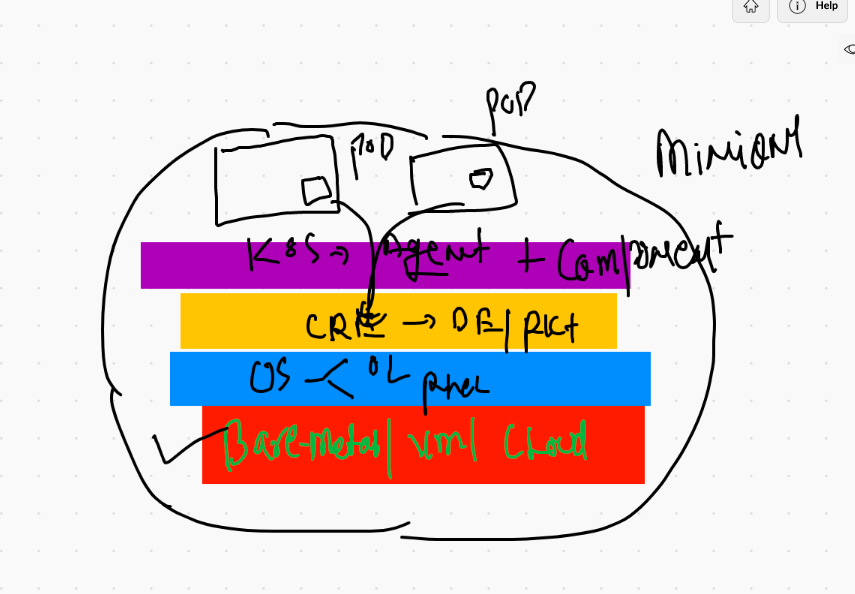 Help
POD
POD
Minion
K8S → Agent + Component
CRE → DE/RKT
OS < OL
RHEL
Bare-metal/vm/cloud